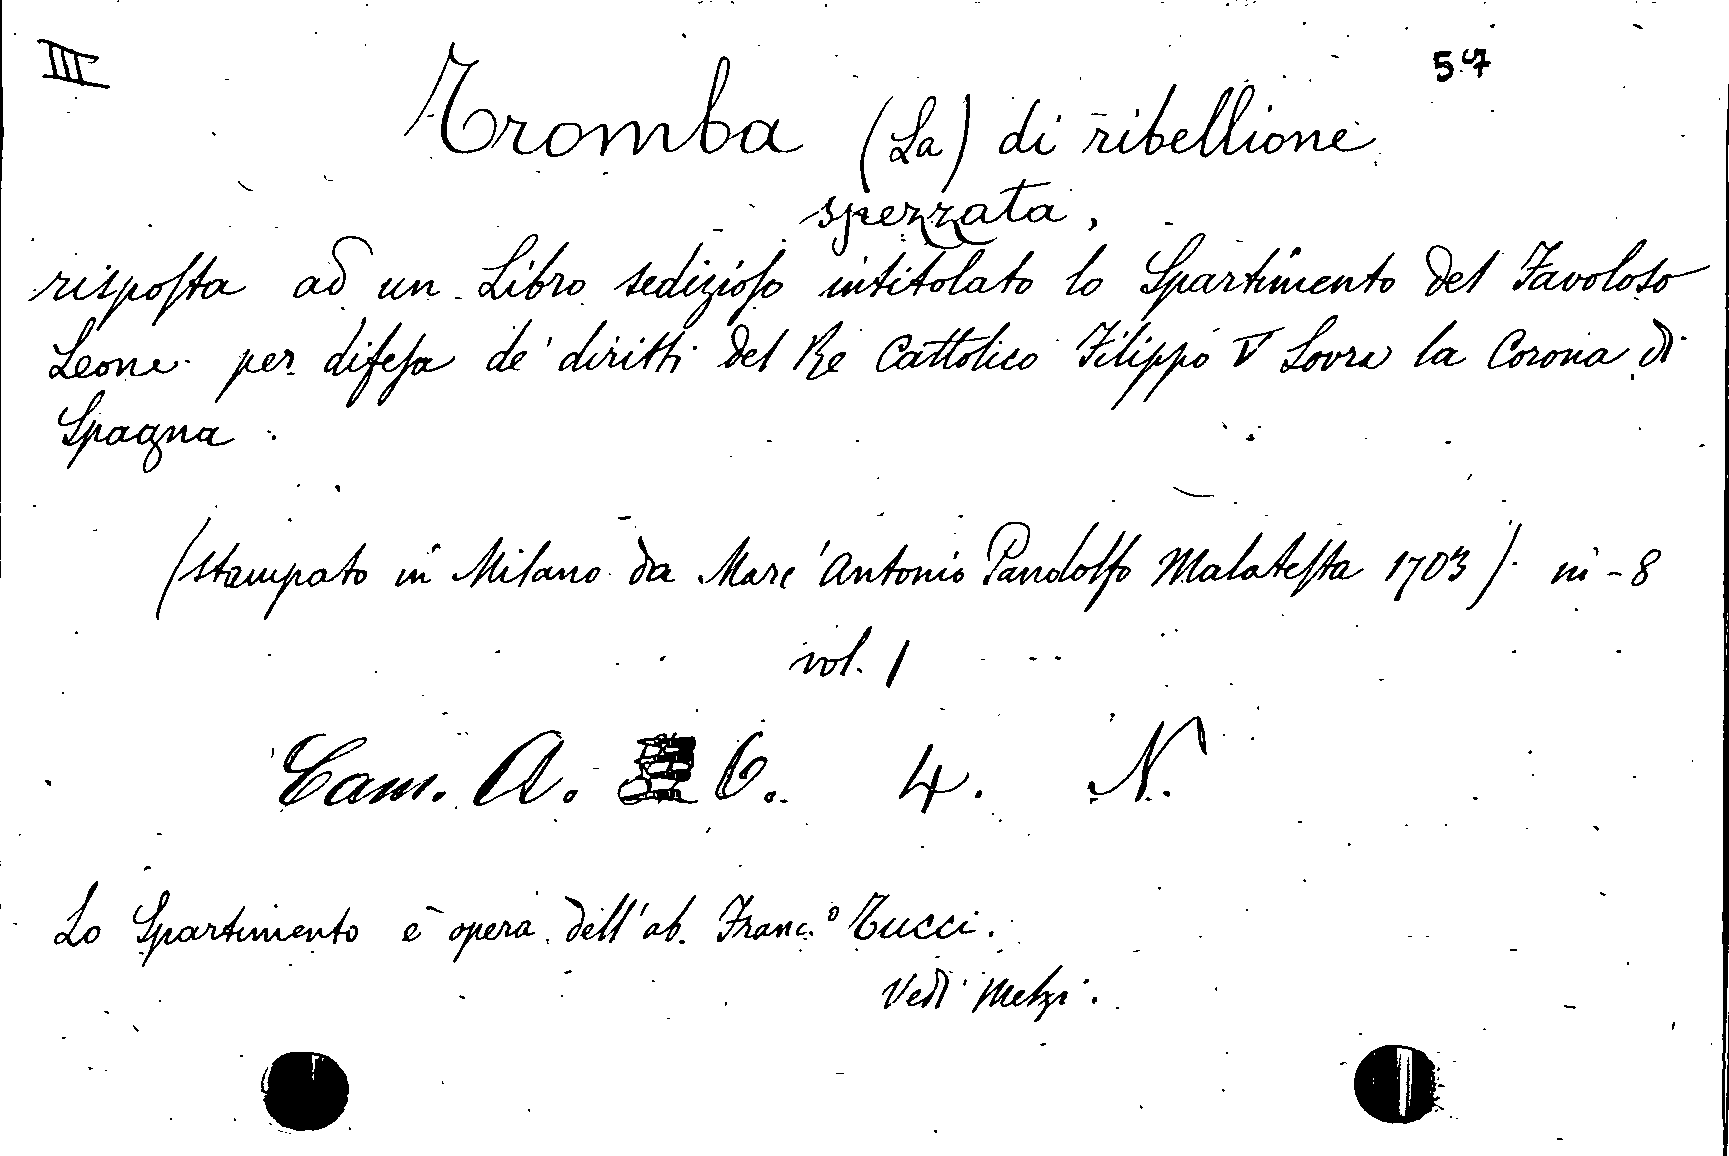 III 57
Tromba (La) di ribellione
spezzata,
risposta ad un Libro sedizioso intitolato lo Spartimento del Favoloso
Leone per difesa de' diritti del Re Cattolico Filippo V Sovra la Corona di
Spagna.
(stampato in Milano da Marc'Antonio Pandolfo Malatesta 1703). in-8
vol. 1
Cam. A. 6. 4. N.
Lo Spartimento è opera dell'ab. Franc.o Tucci.
Vedi Melzi.